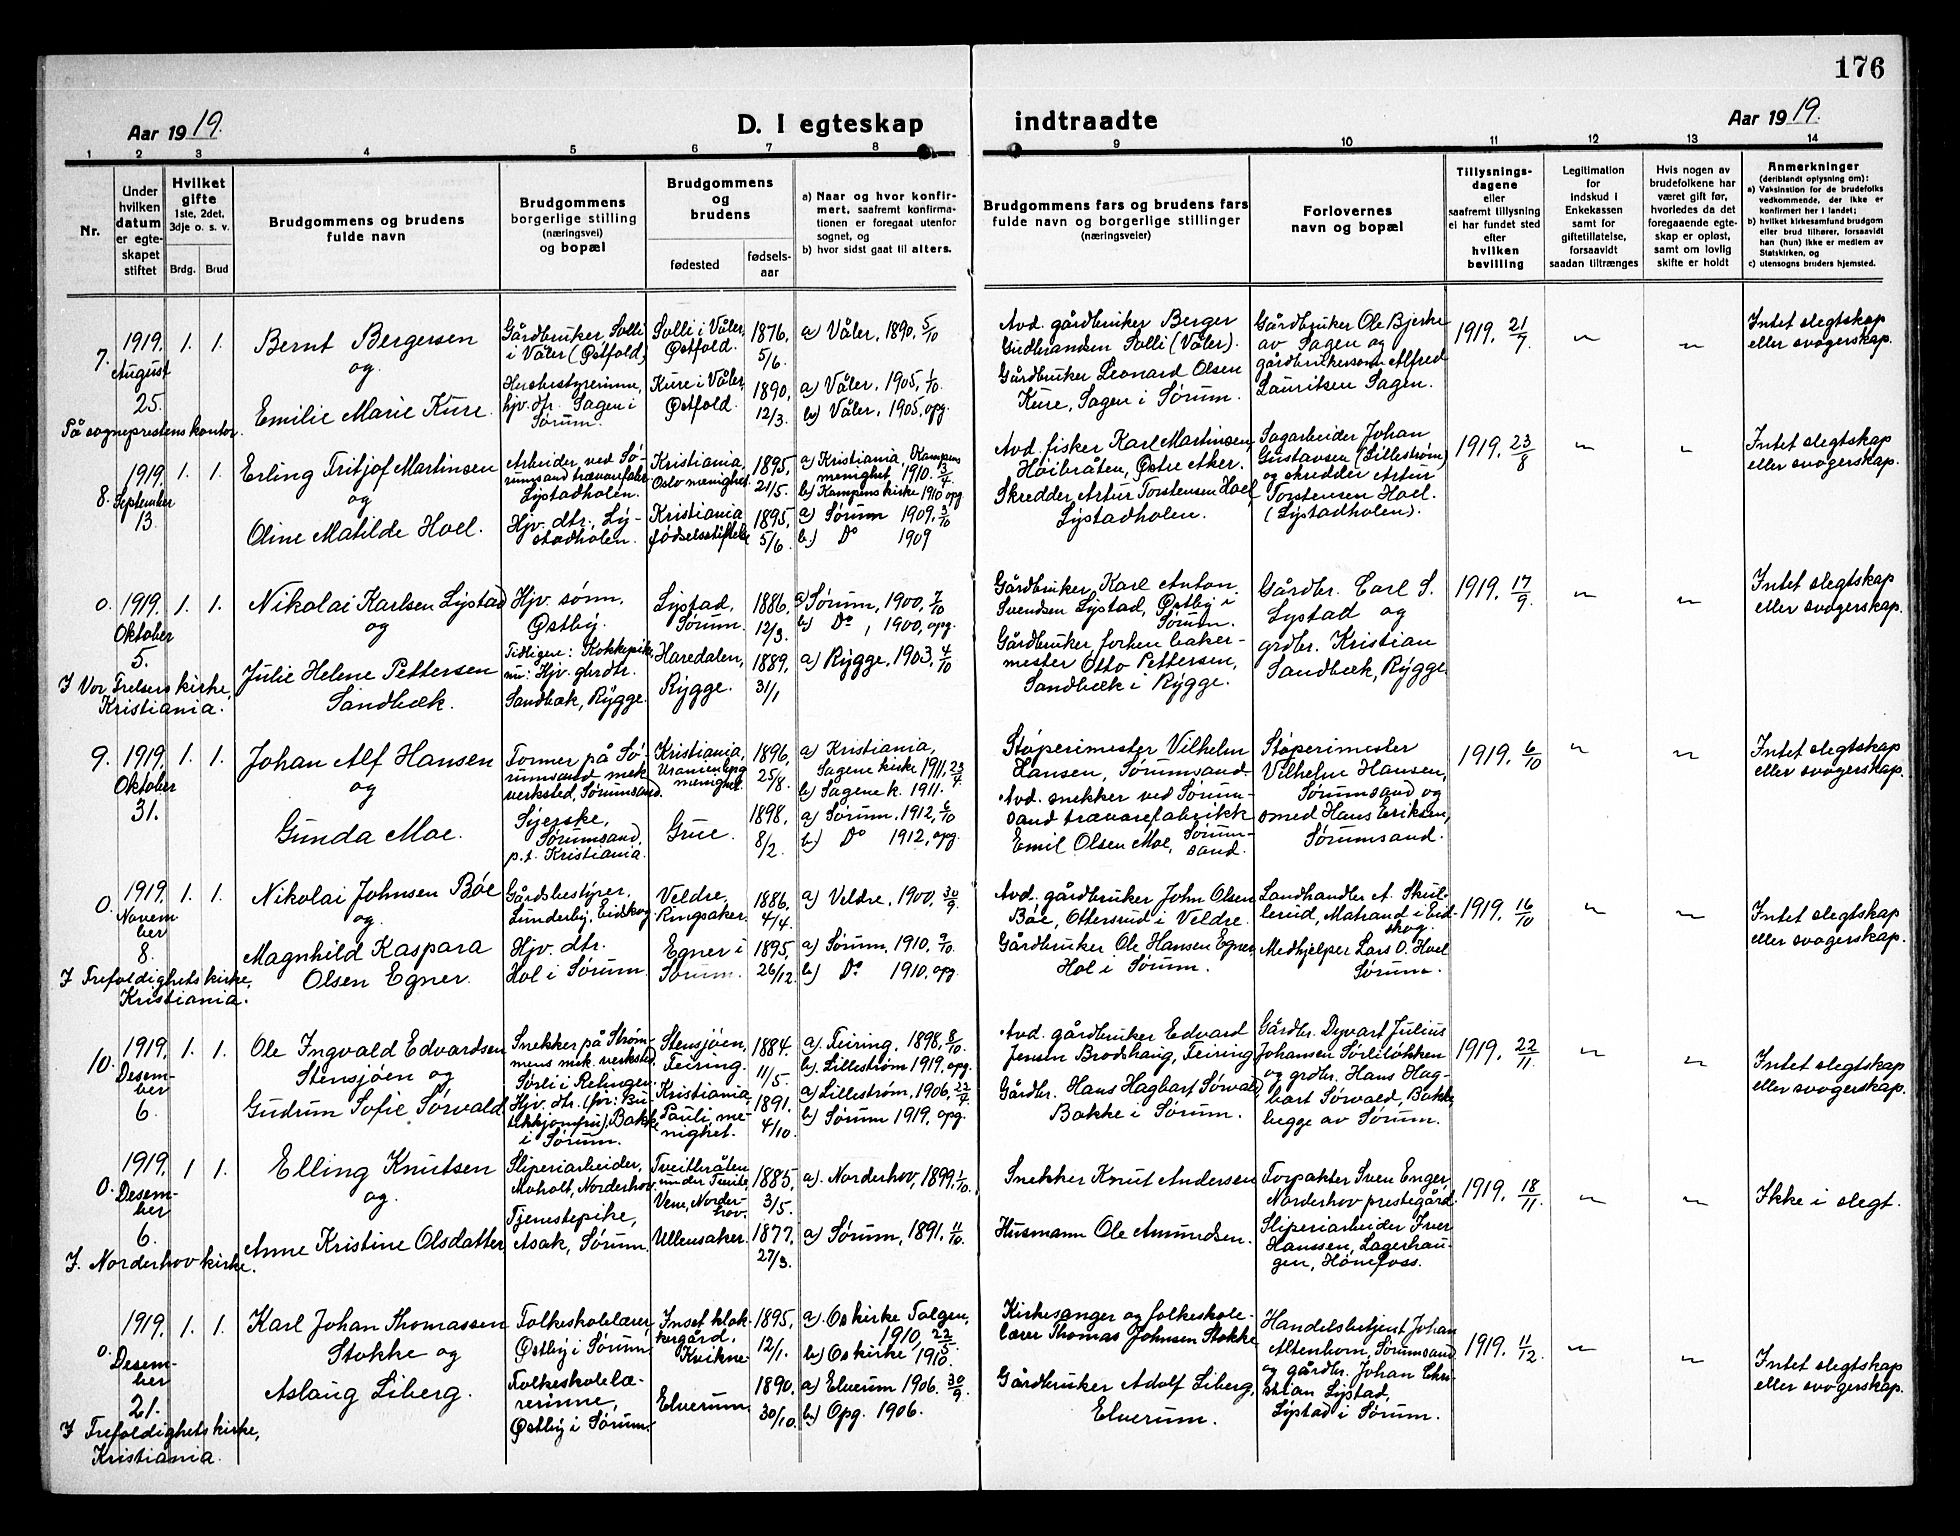 176
Aar 1919.
D. I egteskap indtraadte
Aar 1919.
1 2 3 4 5 6 7 8 9 10 11 12 13 14
Nr.
Under hvilken datum er egteskapet stiftet
Hvilket gifte 1ste, 2det, 3dje o. s. v.
Brdg. Brud
Brudgommens og brudens fulde navn
Brudgommens og brudens borgerlige stilling (næringsvei) og bopæl
Brudgommens og brudens
fødested
fødsels-aar
a) Naar og hvor konfirmert, saafremt konfirmationen er foregaat utenfor sognet, og
b) hvor sidst gaat til alters.
Brudgommens fars og brudens fars fulde navn og borgerlige stillinger (næringsveier)
Forlovernes navn og bopæl
Tillysningsdagene eller saafremt tillysning ei har fundet sted efter hvilken bevilling
Legitimation for indskud i Enkekassen samt for giftetillatelse, forsaavidt saadan tiltrænges
Hvis nogen av brudefolkene har været gift før, hvorledes da det foregaaende egteskap er opløst, samt om lovlig skifte er holdt
Anmerkninger (deriblandt oplysning om):
a) Vaksination for de brudefolks vedkommende, der ikke er konfirmert her i landet;
b) hvilket kirkesamfund brudgom eller brud tilhører, forsaavidt han (hun) ikke er medlem av Statskirken, og
c) utensogns bruders hjemsted.
7. 1919. August 25. 1. 1.
På sogneprestens kontor.
Bernt Bergersen
og
Emilie Marie Kure.
Gårdbruker, Solli
i Våler (Østfold)
Husbestyrerinne,
hjv. dtr. Sagen i
Sørum.
Solli i Våler,
Østfold.
Kure i Våler,
Østfold.
1876, 5/6.
1890, 12/3.
a) Våler, 1890, 5/10
a) Våler, 1905, 1/10.
b) Våler, 1905, opg.
Avd. gårdbruker Berger
Gudbrandsen Solli (Våler).
Gårdbruker Leonard Olsen
Kure, Sagen i Sørum.
Gårdbruker Ole Bjerke
av Sagen og
gårdbrukersønn Alfred
Lauritsen Sagen.
1919, 21/7
Intet slegtskap
eller svogerskap.
8. 1919. September 13. 1. 1.
Erling Fritjof Martinsen
og
Oline Matilde Hoel.
Arbeider ved Sørumsand
trævarefabr.
Lystadholen.
Hjv. dtr. Lystadholen.
Kristiania,
Oslo menighet.
Kristiania
fødselsstiftelse
1895, 21/5.
1895, 5/6.
a) Kristiania, Kampens
menighet, 1910. 13/4
b) Kampens kirke 1910 opg.
a) Sørum 1909, 3/10
b) Do 1909
Avd. fisker Karl Martinsen,
Høibråten, Østre Aker.
Skredder Artur Torstensen Hoel,
Lystadholen.
Sagarbeider Johan
Gustavsen (Lillestrøm)
og skredder Artur
Torstensen Hoel.
(Lystadholen).
1919. 23/8
Intet slegtskap
eller svogerskap.
0. 1919. Oktober 5. 1. 1.
I Vor Frelsers kirke,
Kristiania.
Nikolai Karlsen Lystad
og
Julie Helene Pettersen
Sandbæk.
Hjv. sønn,
Østby.
Tidligere: Kokkepike
nu: Hjv. gbrdtr.
Sandbæk, Rygge.
Lystad,
Sørum.
Haredalen,
Rygge.
1886, 12/3.
1889, 31/1
a) Sørum, 1900, 7/10
b) Do, 1900, opg.
a) Rygge, 1903, 4/10
Gårdbruker, Karl Anton
Svendsen Lystad, Østby i
Sørum.
Gårdbruker, forhen bakermester
Otto Pettersen,
Sandbæk i Rygge.
Gårdbr. Carl S.
Lystad og
grdbr. Kristian
Sandbæk, Rygge.
1919. 17/9.
Intet slegtskap
eller svogerskap.
9. 1919. Oktober 31. 1. 1.
Johan Alf Hansen
og
Gunda Moe.
Former på Sørumsand
mek.
verksted, Sørumsand.
Syerske,
Sørumsand,
p.t. Kristiania.
Kristiania,
Uranienborg
menighet.
Grue.
1896, 25/8.
1898, 8/2.
a) Kristiania,
Sagene kirke 1911, 23/4.
b) Sagene k. 1911.
a) Sørum, 1912, 6/10
b) Do 1912, opg.
Støperimester Vilhelm
Hansen, Sørumsand.
Avd. snekker ved Sørumsand
trævarefabrikk
Emil Olsen Moe, Sørumsand.
Støperimester
Vilhelm Hansen,
Sørumsand og
smed Hans Eriksen,
Sørumsand.
1919. 6/10
Intet slegtskap
eller svogerskap.
0. 1919. November 8. 1. 1.
I Trefoldighetskirke,
Kristiania.
Nikolai Johnsen Bøe
og.
Magnhild Kaspara
Olsen Egner.
Gårdsbestyrer,
Lunderby, Eidskog
Hjv. dtr.
Hol i Sørum.
Veldre,
Ringsaker.
Egner i
Sørum.
1886, 4/4.
1895, 26/12.
a) Veldre, 1900, 30/9
a) Sørum, 1910, 9/10
b) Do 1910, opg.
Avd. gårdbruker John Olsen
Bøe, Ottersrud i Veldre.
Gårdbruker Ole Hansen Egner,
Hol i Sørum.
Landhandler A. Skullerud,
Matrand i Eidskog.
Medhjelper Lars O. Hoel
Sørum.
1919. 16/10
Intet slegtskap
eller svogerskap.
10. 1919. Desember 6. 1. 1.
Ole Ingvald Edvardsen
Stensjøen og
Gudrun Sofie Sørvald
Snekker på Strømmens
mek. verksted,
Sørli i Relingen
Hjv. dtr. (før: Butikkjomfru),
Bakke
i Sørum.
Stensjøen,
Feiring.
Kristiania,
Pauli menighet.
1884. 11/5.
1891. 4/10.
a) Feiring, 1898, 8/10.
b) Lillestrøm 1919, opg
a) Lillestrøm, 1906, 22/4
b) Sørum 1919, opg.
Avd. gårdbruker Edvard
Jensen Brodshaug, Feiring
Gårdbr. Hans Hagbart Sørvald
Bakke i Sørum.
Gårdbr. Dyvart Julius
Johansen Sørliløkken
og grdbr. Hans Hagbart
Sørvald, Bakke,
begge av Sørum.
1919. 22/11.
Intet slegtskap
eller svogerskap.
0. 1919. Desember 6. 1 1.
I. Norderhov kirke.
Elling Knutsen
og.
Anne Kristine Olsdatter
Sliperiarbeider,
Moholt, Norderhov.
Tjenestepike,
Asak, Sørum.
Tveitbråten
under Tveite,
Vene, Norderhov.
Ullensaker.
1885, 3/5.
1877, 27/3.
a). Norderhov, 1899, 1/10.
a) Sørum, 1891, 11/10.
Snekker Knut Andersen
Husmann Ole Amundsen.
Forpakter Sven Enger,
Norderhov prestegård
Sliperiarbeider Iver
Hanssen, Lagerhaugen,
Hønefoss.
1919. 18/11.
Ikke i slegt.
0. 1919. Desember 21. 1. 1.
I Trefoldighetskirke,
Kristiania.
Karl Johan Thomassen
Stokke og
Aslaug Liberg.
Folkeskolelærer,
Østby i Sørum
Folkeskolelærerinne,
Østby i Sørum.
Inset klokkergård,
Kvikne
Elverum
1895, 12/1.
1890, 30/10.
a) Os kirke Tolgen,
1910, 22/5
b) Os kirke 1910.
a) Elverum 1906. 30/9.
b) Opg. 1906.
Kirkesanger og folkeskolelærer
Thomas Johnsen Stokke
Gårdbruker Adolf Liberg,
Elverum.
Handelsbetjent Johan
Altenborn, Sørumsand
og gårdbr. Johan Christian
Lystad,
Lystad i Sørum.
1919. 11/12.
Intet slegtskap
eller svogerskap.